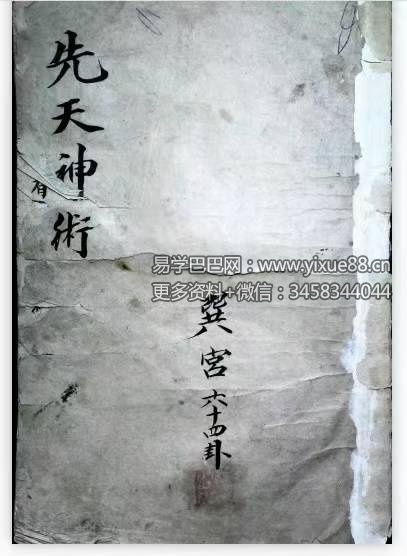 先天神術
有一
巽宮六十四卦
易学巴巴网：www.yixue88.cn
更多资料+微信：3458344044